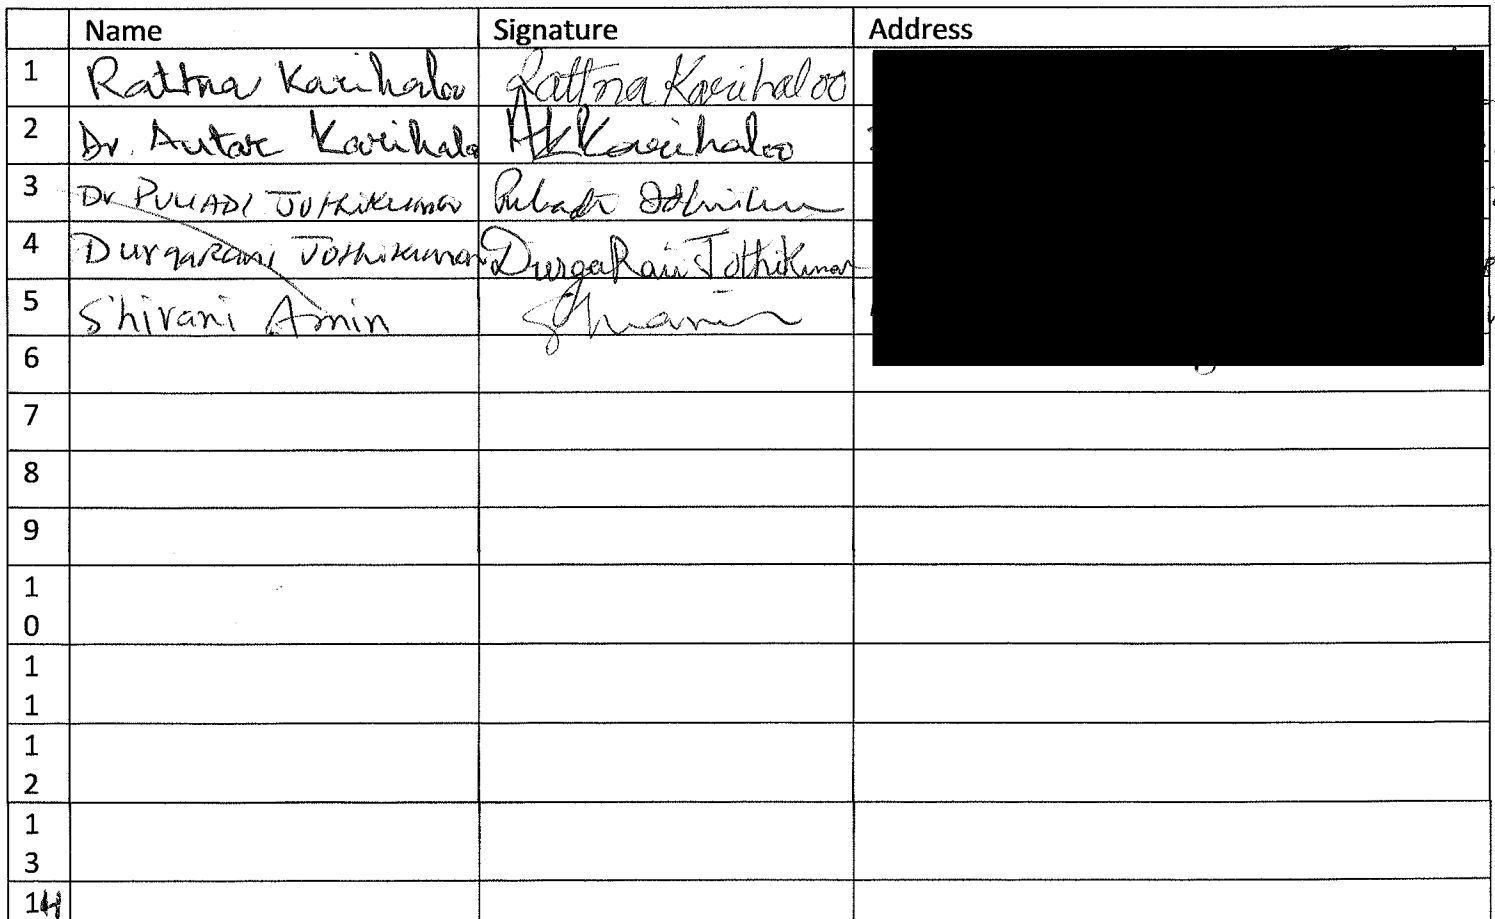 Name Signature Address
1 Rattna Karihaloo Rattna Karihaloo
2 Dr. Autar Karihaloo AKKarihaloo
3 Dr PULIADI JOTHIKUMAR Jothikumar
4 DurgaRani Jothikumar DurgaRani Jothikumar
5 Shivani Amin
6
7
8
9
1
0
1
1
1
2
1
3
14